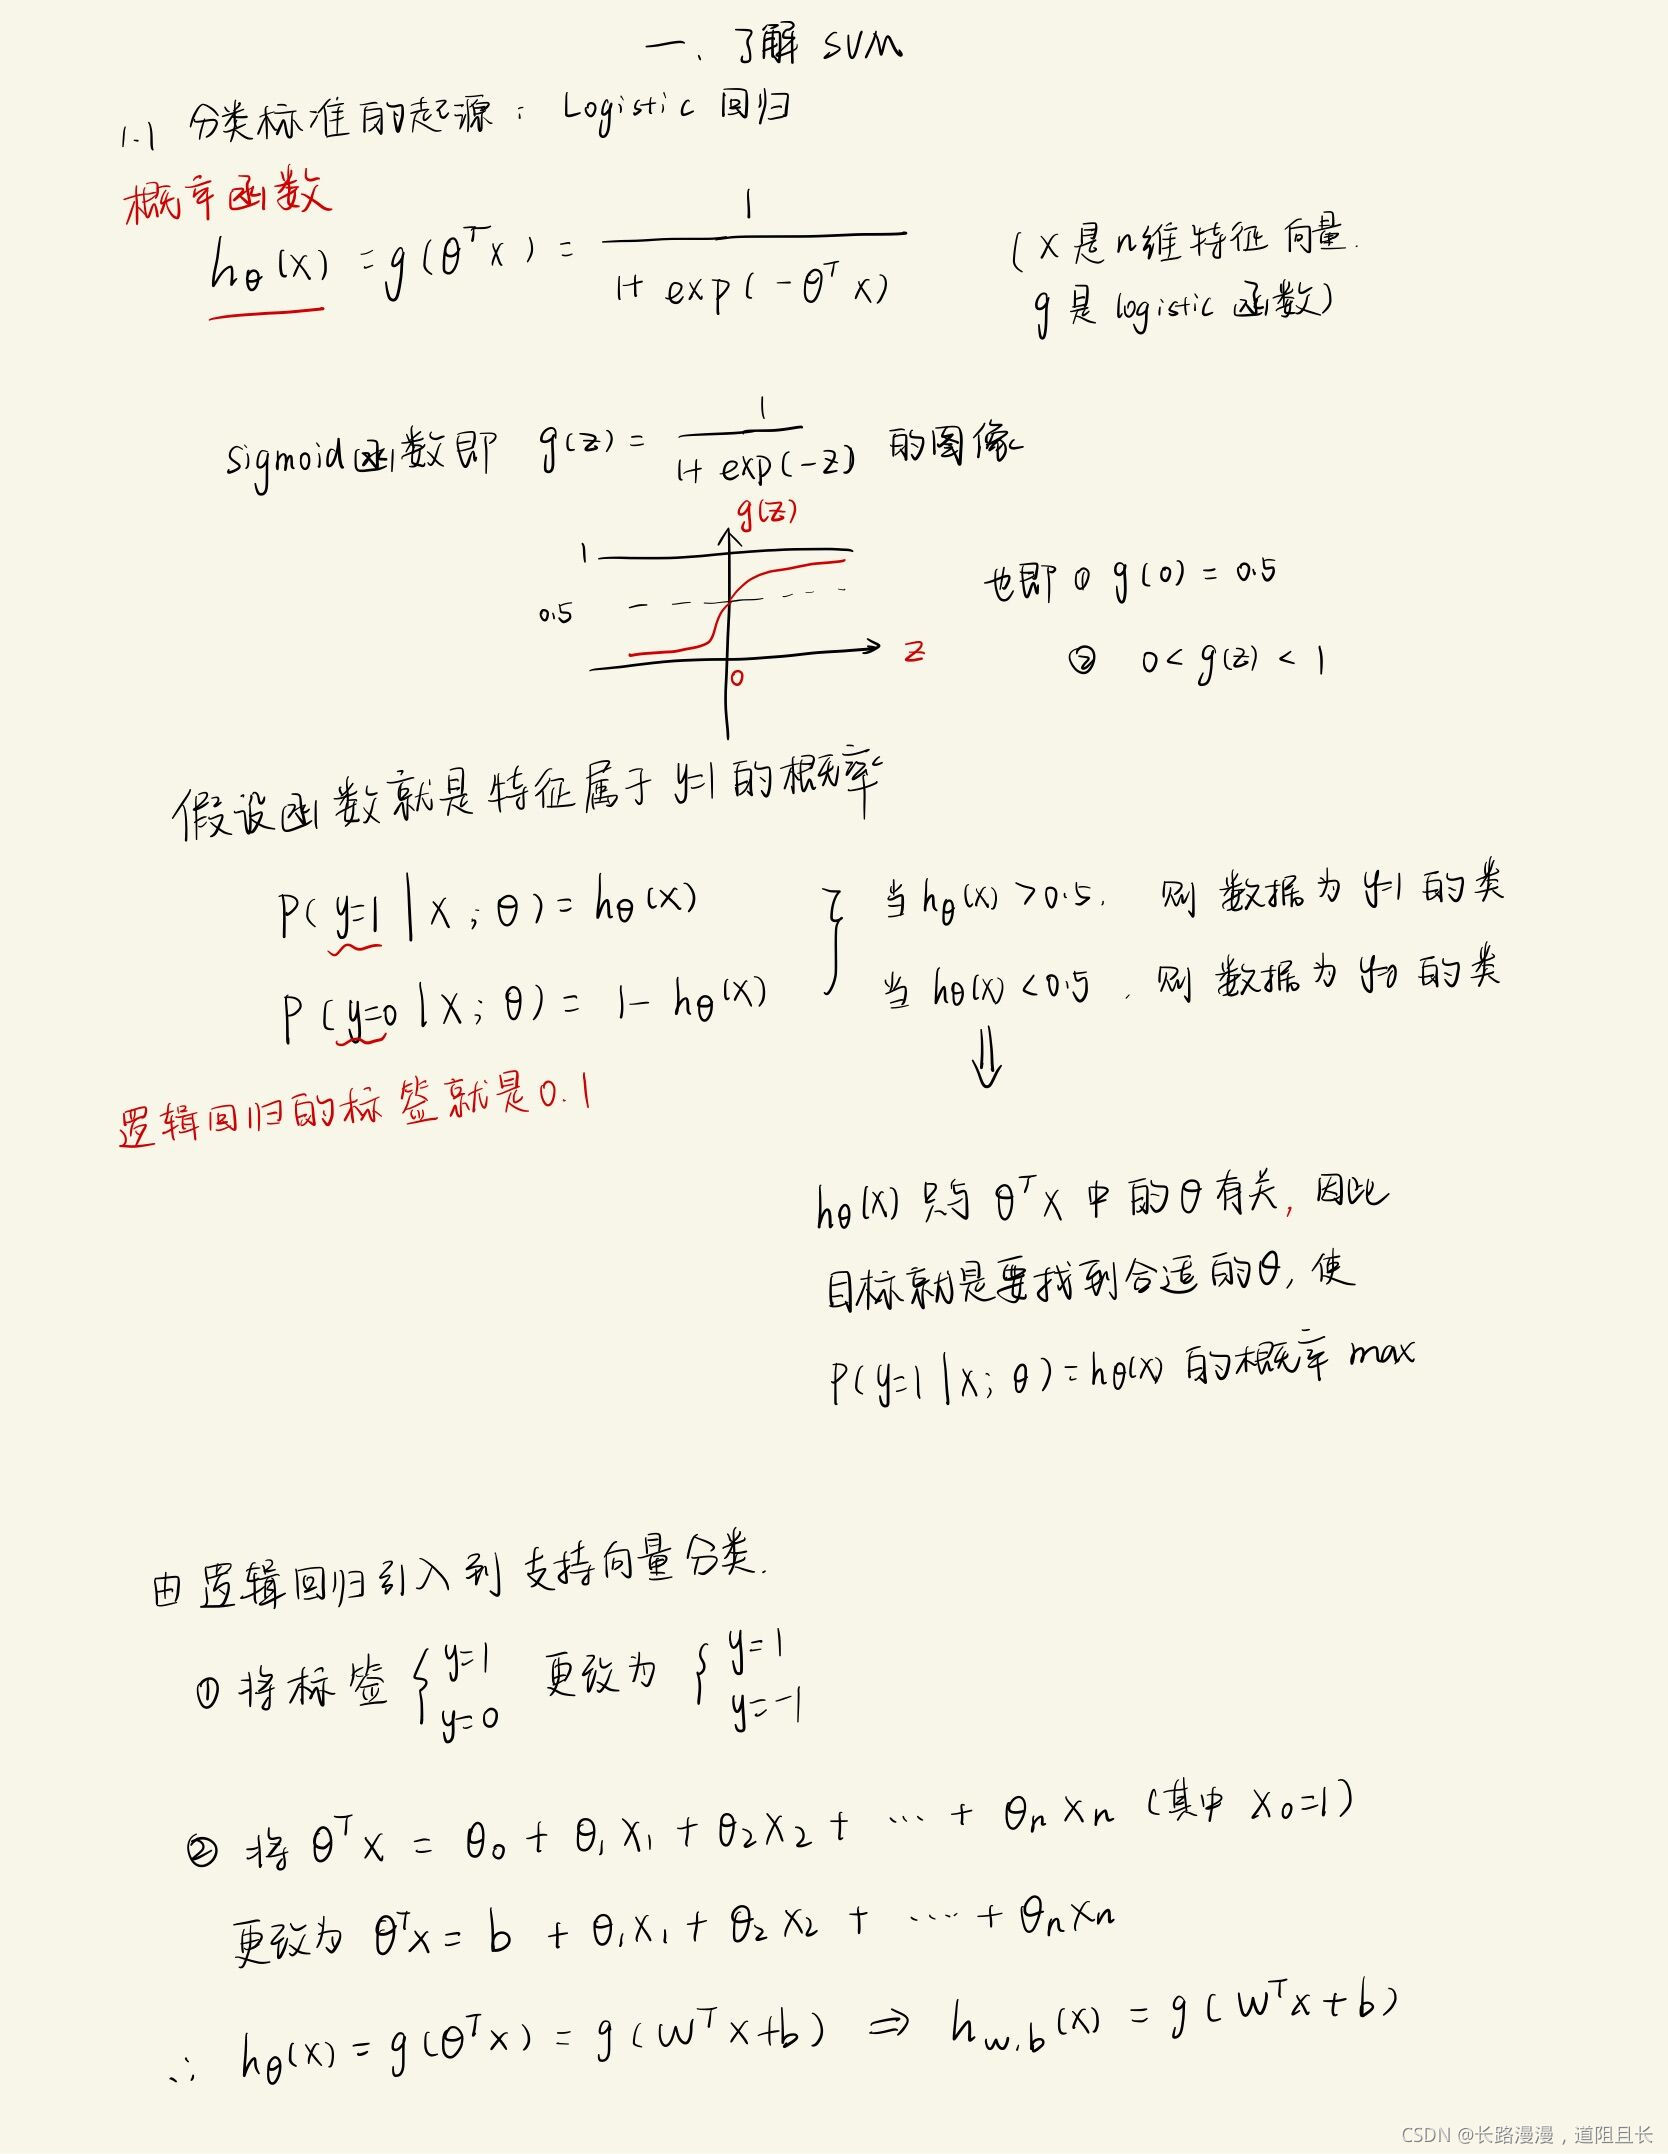 一、了解 SVM
1.1 分类标准的起源：Logistic 回归
概率函数
hθ(x) = g(θᵀx) = 1 / (1+exp(-θᵀx)) (x是n维特征向量.
g是logistic函数)
sigmoid函数即 g(z) = 1 / (1+exp(-z)) 的图像
g(z)
1
0.5
z
0
也即 ① g(0) = 0.5
② 0 < g(z) < 1
假设函数就是特征属于y=1的概率
P(y=1 | x; θ) = hθ(x) } 当hθ(x) > 0.5, 则数据为y=1的类
P(y=0 | x; θ) = 1 - hθ(x) 当hθ(x) < 0.5, 则数据为y=0的类
⇓
逻辑回归的标签就是0.1
hθ(x) 只与 θᵀx 中的θ有关, 因此
目标就是要找到合适的θ, 使
P(y=1 | x; θ) = hθ(x) 的概率 max
由逻辑回归引入到支持向量分类.
① 将标签 { y=1 y=0 更改为 { y=1 y=-1
② 将 θᵀx = θ₀ + θ₁x₁ + θ₂x₂ + ... + θₙxₙ (其中 x₀=1)
更改为 θᵀx = b + θ₁x₁ + θ₂x₂ + ... + θₙxₙ
∴ hθ(x) = g(θᵀx) = g(wᵀx+b) ⇒ h w,b (x) = g(wᵀx+b)
CSDN @长路漫漫，道阻且长